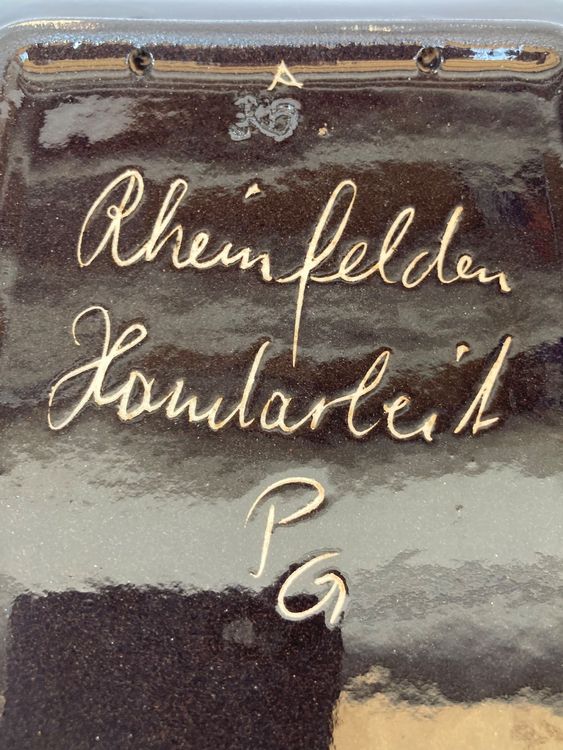 A
Rheinfelden
Handarbeit
P
G